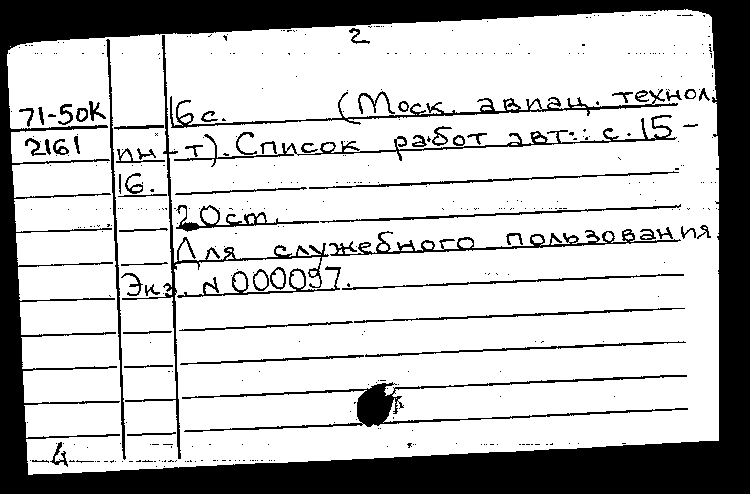 2
71-50К 16 с. (Моск. авиац. технол.
2161 ин-т). Список работ авт.: с. 15-
16.
20 ст.
Для служебного пользования.
Экз. N 000097.
4